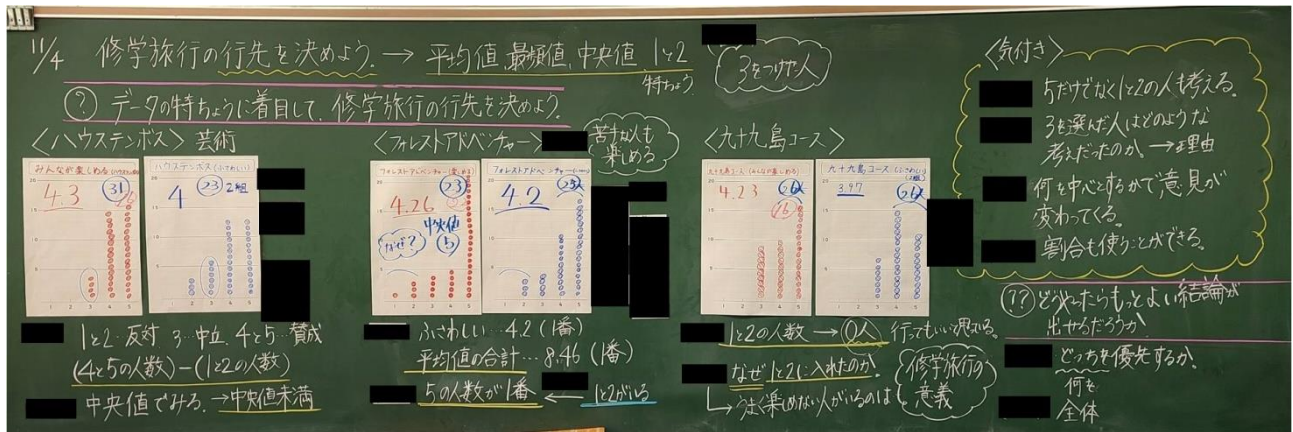 11/4 修学旅行の行先を決めよう. → 平均値,最頻値,中央値,1と2
特ちょう
3をつけた人
? データの特ちょうに着目して、修学旅行の行先を決めよう。
〈ハウステンボス〉芸術
みんなが楽しめる
4.3
31
ハウステンボス(ふさわしい)
4
23 2組
1と2…反対 3…中立. 4と5…賛成
(4と5の人数)-(1と2の人数)
中央値でみる.→中央値未満
〈フォレストアドベンチャー〉
苦手な人も
楽しめる
フォレストアドベンチャー(楽しめる)
4.26
23
中央値
5
なぜ?
フォレストアドベンチャー
4.2
ふさわしい…4.2(1番)
平均値の合計…8.46(1番)
5の人数が1番 ← 1と2がいる
〈九十九島コース〉
九十九島コース(みんなが楽しめる)
4.23
26人
16
九十九島コース(ふさわしい)
3.97
26人
1と2の人数→0人 行ってもいいと思っている。
なぜ1と2に入れたのか.
修学旅行の
意義
〈気付き〉
5だけでなく1と2の人も考える。
3を選んだ人はどのような
考えだったのか。→理由
何を中心とするかで意見が
変わってくる。
割合も使うことができる。
?? どうしたらもっとよい結論が
出せるだろうか
どっちを優先するか。
何を
全体